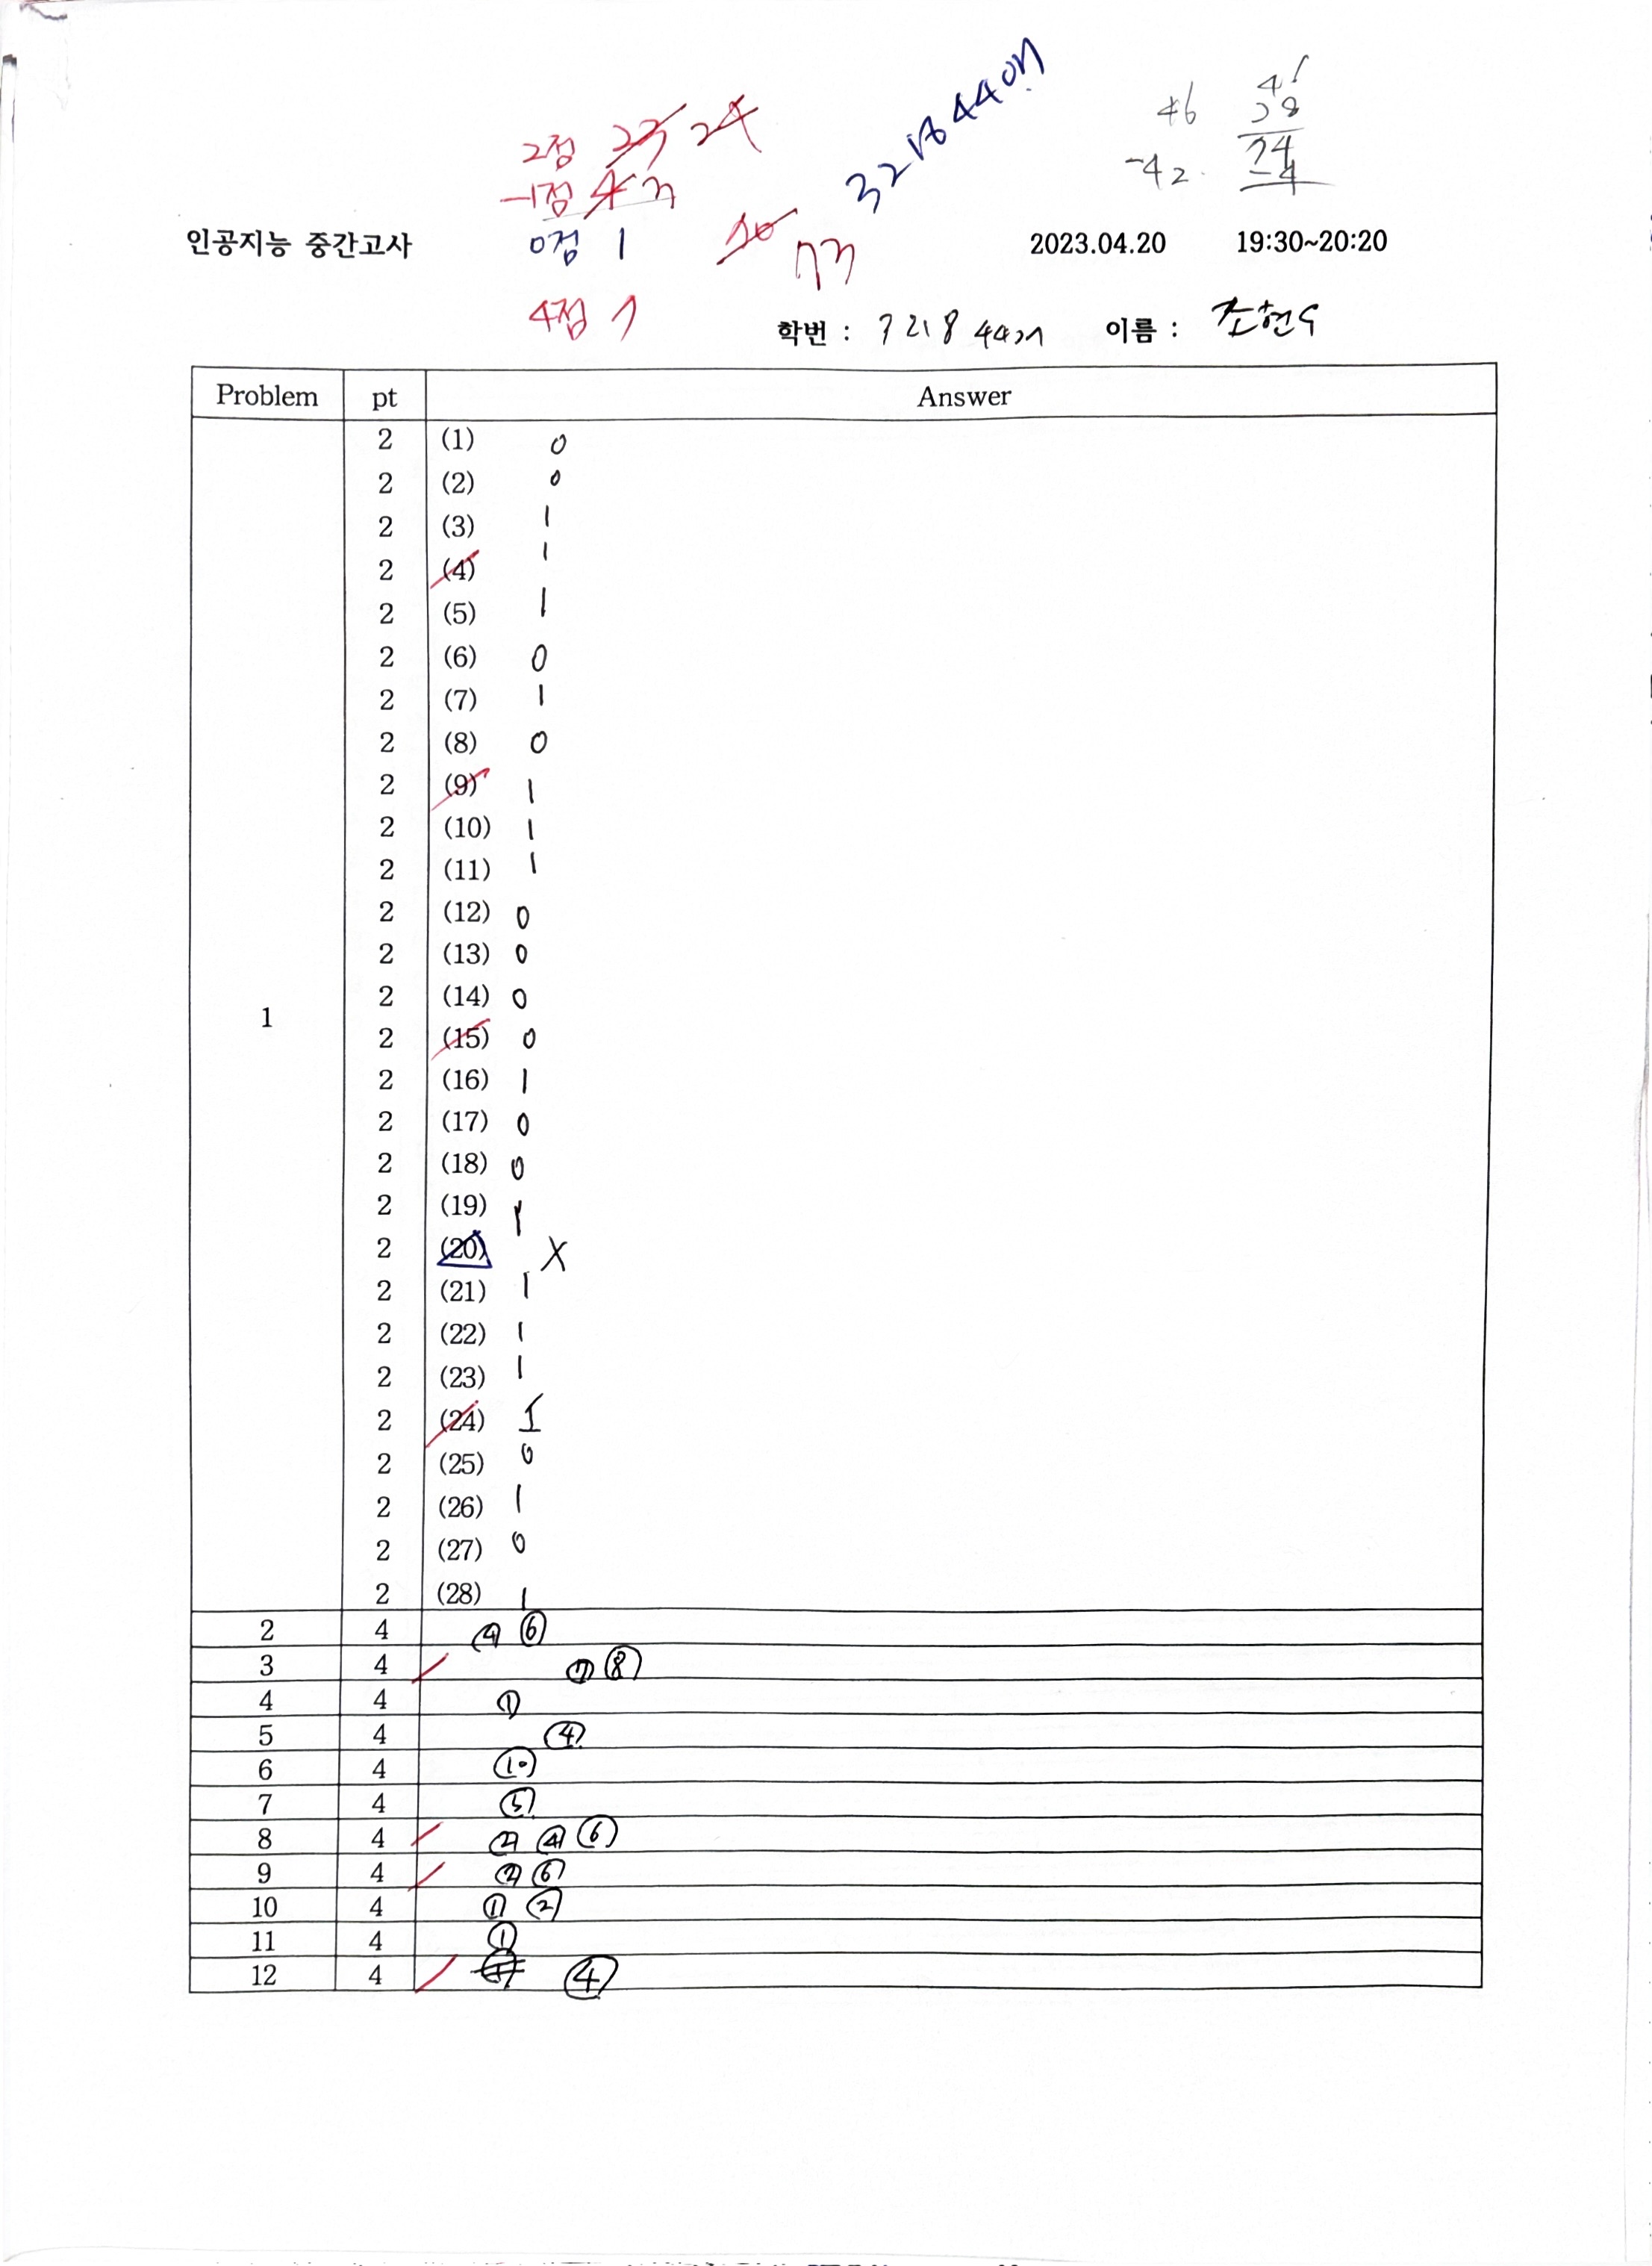 2점 23 24
-1점 4 3
0점 1
4점 7
73
46
-42
74
-4
인공지능 중간고사
2023.04.20 19:30~20:20
학번 : 이름 : 조현우
Problem pt Answer
1
2 (1) 0
2 (2) 0
2 (3) 1
2 (4) 1
2 (5) 1
2 (6) 0
2 (7) 1
2 (8) 0
2 (9) 1
2 (10) 1
2 (11) 1
2 (12) 0
2 (13) 0
2 (14) 0
2 (15) 0
2 (16) 1
2 (17) 0
2 (18) 0
2 (19) 1
2 (20) X
2 (21) 1
2 (22) 1
2 (23) 1
2 (24) 1
2 (25) 0
2 (26) 1
2 (27) 0
2 (28) 1
2 4 ④ ⑥
3 4 ⑦ ⑧
4 4 ①
5 4 ④
6 4 ⑩
7 4 ⑤
8 4 ② ④ ⑥
9 4 ② ⑥
10 4 ① ②
11 4 ①
12 4 ④